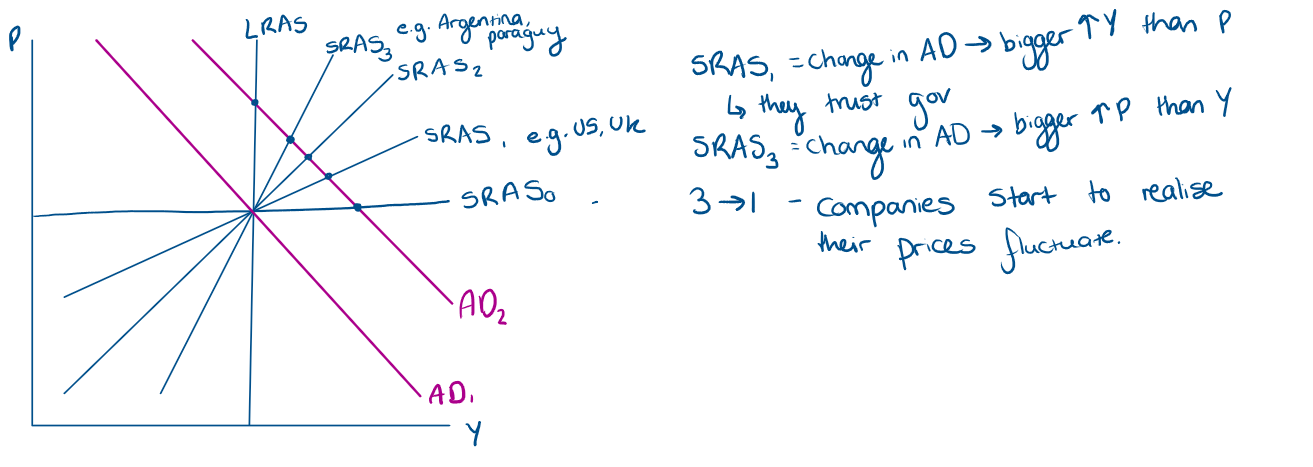 P
LRAS
SRAS3 e.g. Argentina,
paraguy
SRAS2
SRAS1 e.g. US, UK
SRAS0
AD2
AD1
Y
SRAS1 = change in AD → bigger ↑ Y than P
↳ they trust gov
SRAS3 = change in AD → bigger ↑ P than Y
3 → 1 - companies start to realise
their prices fluctuate.